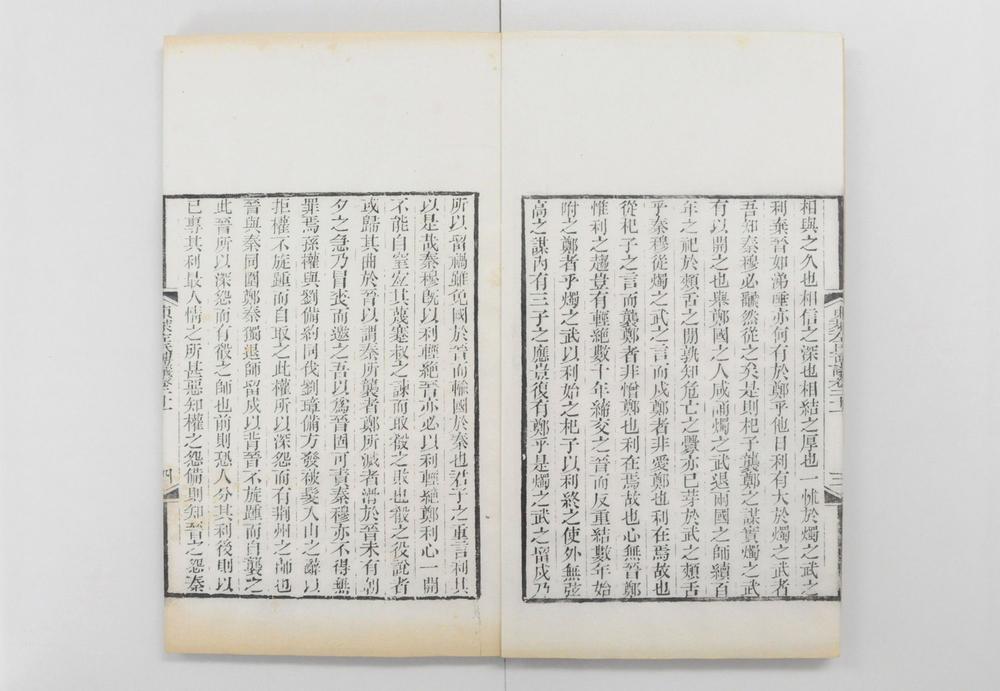 相與之久也相信之深也相結之厚也一怵於燭之武之
利棄晉如涕唾亦何有於鄭乎他日利有大於燭之武者
吾知秦穆必飜然從之矣是則杞子襲鄭之謀實燭之武
有以開之也舉鄭國之人咸誦燭之武退兩國之師續百
年之祀於頰舌之閒孰知危亡之釁亦已芽於武之頰舌
乎秦穆從燭之武之言而戍鄭者非愛鄭也利在焉故也
從杞子之言而襲鄭者非憎鄭也利在焉故也心無晉鄭
惟利之趨豈有輕絶數十年締交之晉而反重結數年始
附之鄭者乎燭之武以利始之杞子以利終之使外無弦
高之謀內有三子之應豈復有鄭乎是燭之武之留戍乃
三
所以留禍雖免國於晉而輸國於秦也君子之重言利其
以是哉秦穆旣以利輕絶晉亦必以利輕絶鄭利心一開
不能自窒宜其蔑蹇叔之諫而取殽之敗也殽之役說者
或歸其曲於晉以謂秦所襲者鄭所滅者滑於晉未有朝
夕之急乃冒喪而邀之吾以爲晉固可責秦穆亦不得無
罪焉孫權與劉備約同伐劉璋備方發被髮入山之辭以
拒權不旋踵而自取之此權所以深怨而有荆州之師也
晉與秦同圍鄭秦獨退師留戍以背晉不旋踵而自襲之
此晉所以深怨而有殽之師也前則恐人分其利後則以
已專其利最人情之所甚惡知權之怨備則知晉之怨秦
四